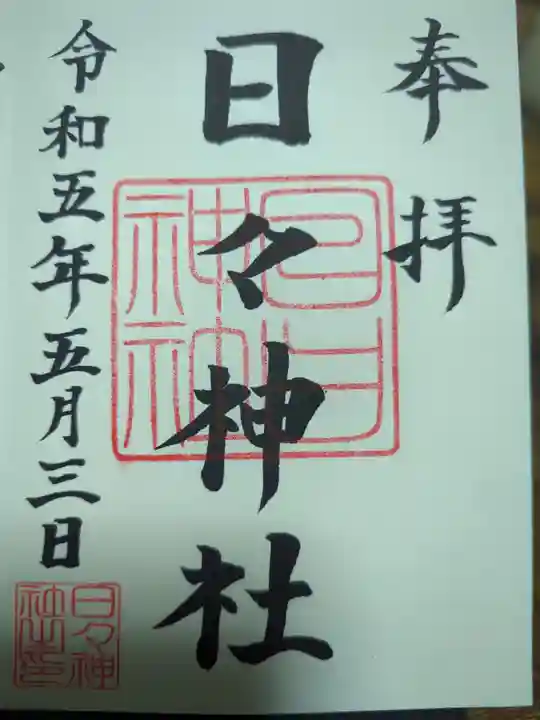 奉拝
日々神社
令和五年五月三日
日日神社
日々神社之印